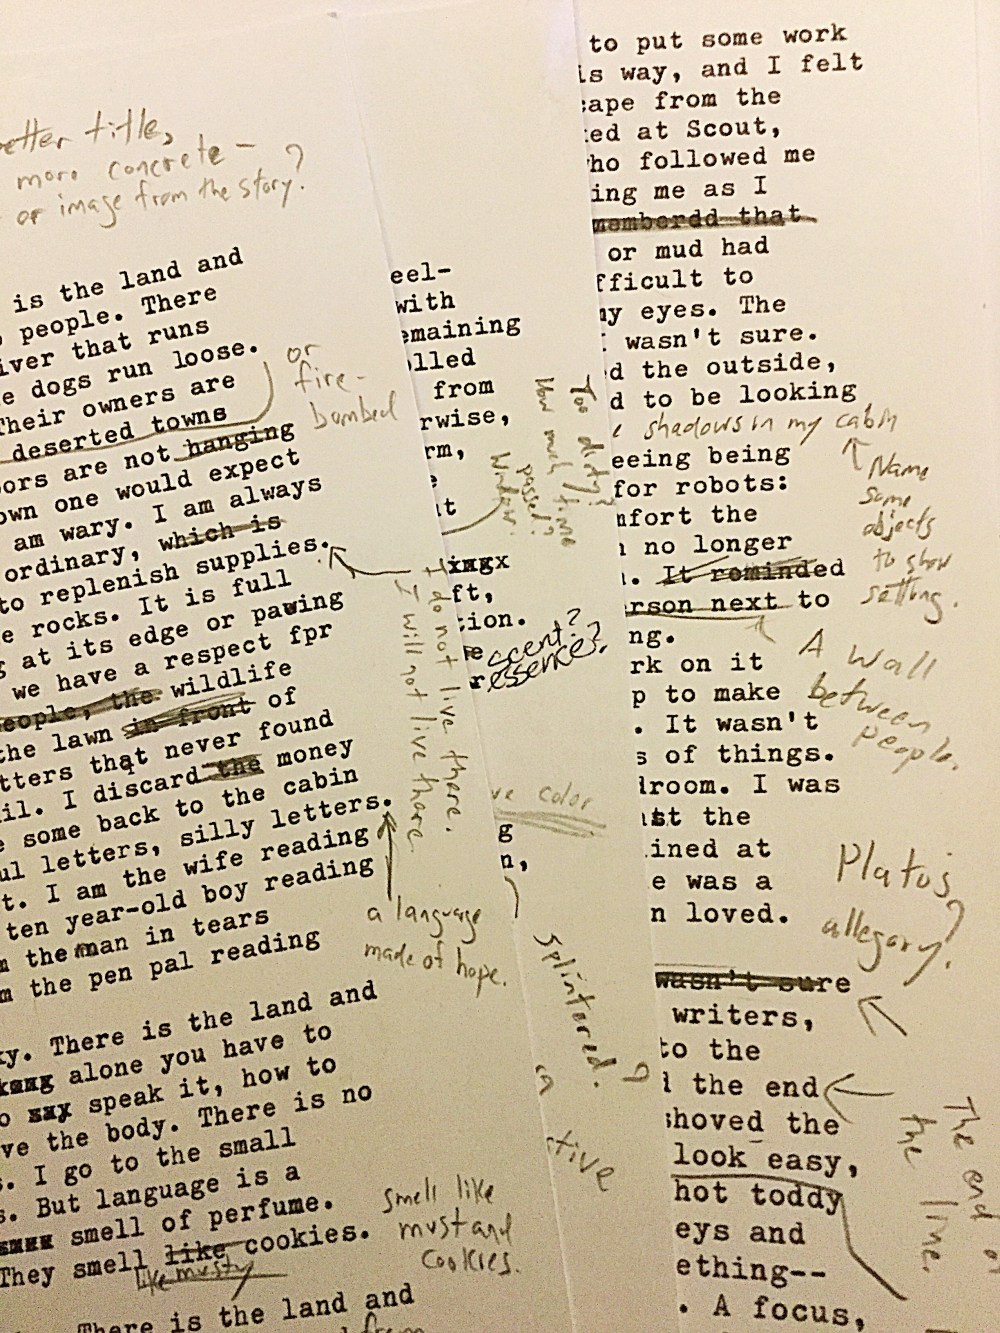 better title,
more concrete—
or image from the story?
is the land and
people. There
iver that runs
e dogs run loose.
Their owners are
deserted towns
oors are not hanging
own one would expect
am wary. I am always
ordinary, which is
to replenish supplies.
e rocks. It is full
g at its edge or pawing
we have a respect fpr
eople, the wildlife
the lawn in front of
tters that never found
il. I discard the money
e some back to the cabin
ul letters, silly letters.
t. I am the wife reading
ten year-old boy reading
m the man in tears
m the pen pal reading
ky. There is the land and
alone you have to
o say speak it, how to
ve the body. There is no
s. I go to the small
s. But language is a
smell of perfume.
They smell like cookies.
like musty
There is the land and
from
or
fire-
bombed
I do not live there.
I will not live there.
a language
made of hope.
smell like
must and
cookies.
eel-
with
emaining
olled
from
rwise,
rm,
e
it
ingx
ft,
tion.
e
r
scent?
essence?
ve color
g
n,
Too dirty?
How much time
passed?
Window.
splintered.
?
in
tive
to put some work
is way, and I felt
cape from the
ked at Scout,
who followed me
ing me as I
memberdd that
or mud had
fficult to
my eyes. The
I wasn't sure.
d the outside,
d to be looking
shadows in my cabin
eeing being
for robots:
mfort the
no longer
. It reminded
erson next to
ng.
rk on it
p to make
. It wasn't
s of things.
droom. I was
ast the
ined at
e was a
n loved.
wasn't sure
writers,
to the
d the end
shoved the
look easy,
hot toddy
eys and
ething--
. A focus,
Name
some
objects
to show
setting.
A wall
between
people.
Plato's
allegory?
The end of
the line.